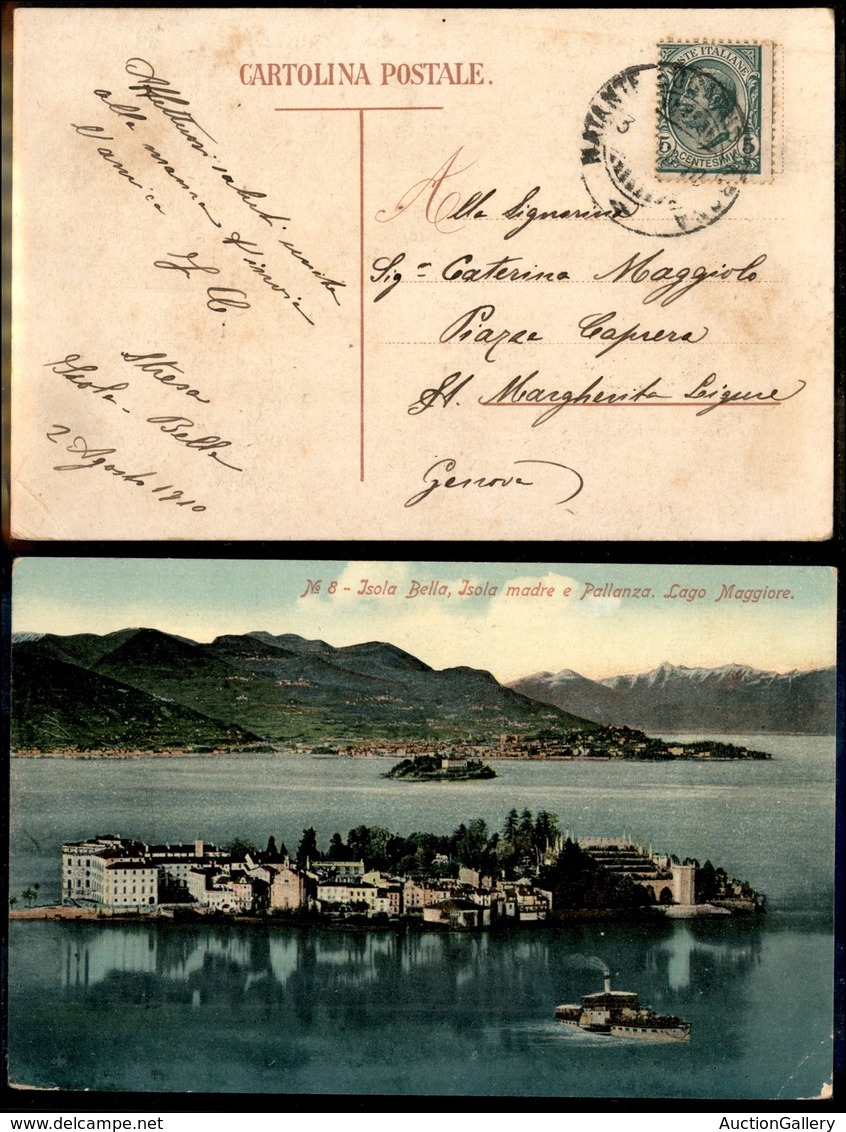 CARTOLINA POSTALE.
POSTE ITALIANE
5 CENTESIMI 5
NATANTE
Affettuosi saluti uniti
alla mamma
L'amica
Stresa
Isola - Bella
2 Agosto 1910
Alla Signorina
Sig.na Caterina Maggiolo
Piazza Caprera
St. Margherita Ligure
Genova
№ 8 - Isola Bella, Isola madre e Pallanza. Lago Maggiore.
AuctionGallery